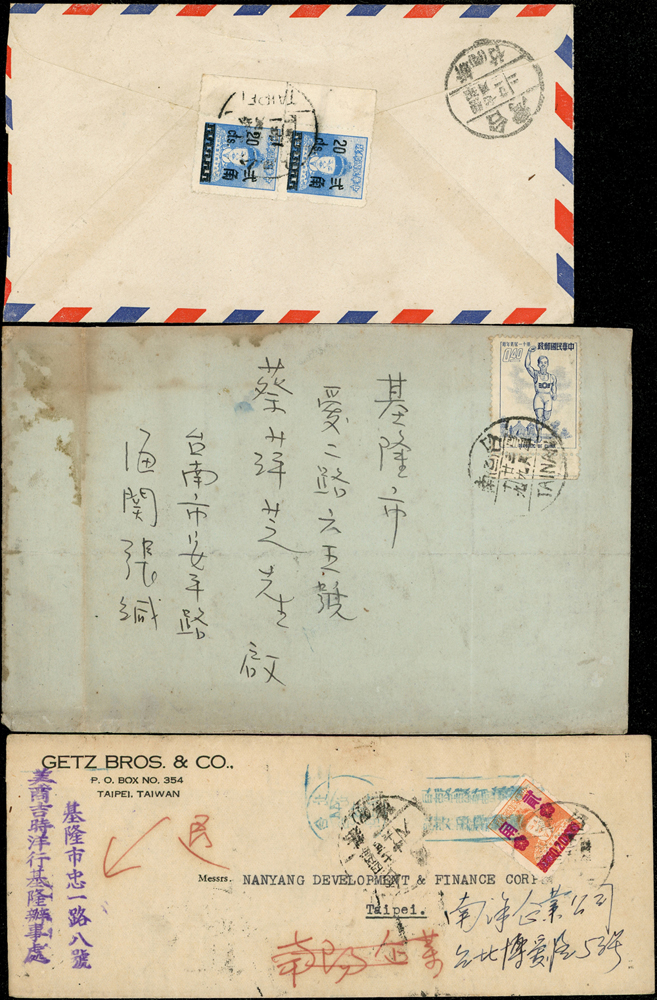 TAIPEI
20 cts.
貳角
20 cts.
貳角
中華民國郵政
0.40
TAINAN
基隆市
愛二路六五號
蔡萍芝先生啟
台南市安平路
海関張緘
GETZ BROS. & CO.,
P. O. BOX NO. 354
TAIPEI, TAIWAN
基隆市忠一路八號
美商吉時洋行基隆辦事處
退
Messrs. NANYANG DEVELOPMENT & FINANCE CORP
Taipei.
南洋企業公司
台北博愛路53號
南陽企業
貳角